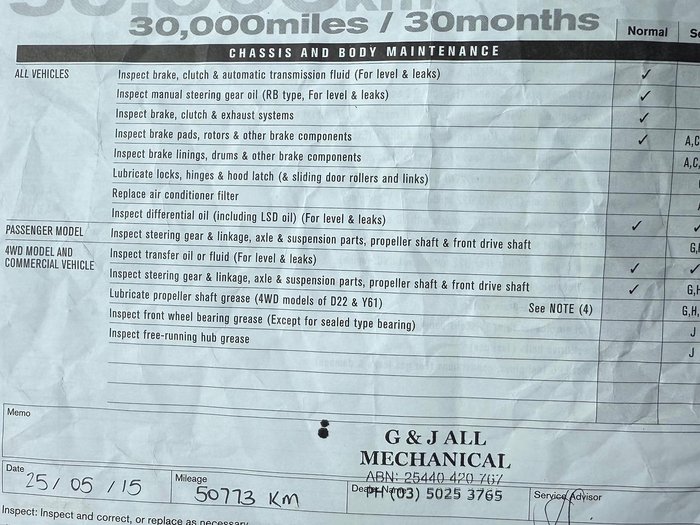 30,000miles / 30months
Normal
CHASSIS AND BODY MAINTENANCE
ALL VEHICLES
Inspect brake, clutch & automatic transmission fluid (For level & leaks) ✓
Inspect manual steering gear oil (RB type, For level & leaks) ✓
Inspect brake, clutch & exhaust systems ✓
Inspect brake pads, rotors & other brake components ✓ A,C
Inspect brake linings, drums & other brake components A,C,
Lubricate locks, hinges & hood latch (& sliding door rollers and links)
Replace air conditioner filter
Inspect differential oil (including LSD oil) (For level & leaks) ✓ ✓
PASSENGER MODEL Inspect steering gear & linkage, axle & suspension parts, propeller shaft & front drive shaft
4WD MODEL AND COMMERCIAL VEHICLE
Inspect transfer oil or fluid (For level & leaks) ✓ ✓
Inspect steering gear & linkage, axle & suspension parts, propeller shaft & front drive shaft ✓ G,H
Lubricate propeller shaft grease (4WD models of D22 & Y61) See NOTE (4) G,H,
Inspect front wheel bearing grease (Except for sealed type bearing) J
Inspect free-running hub grease J
Memo
G & J ALL
MECHANICAL
ABN: 25440 420 767
PH (03) 5025 3765
Date 25/05/15
Mileage 50773 KM
Dealer Name
Service Advisor
Inspect: Inspect and correct, or replace as necessary